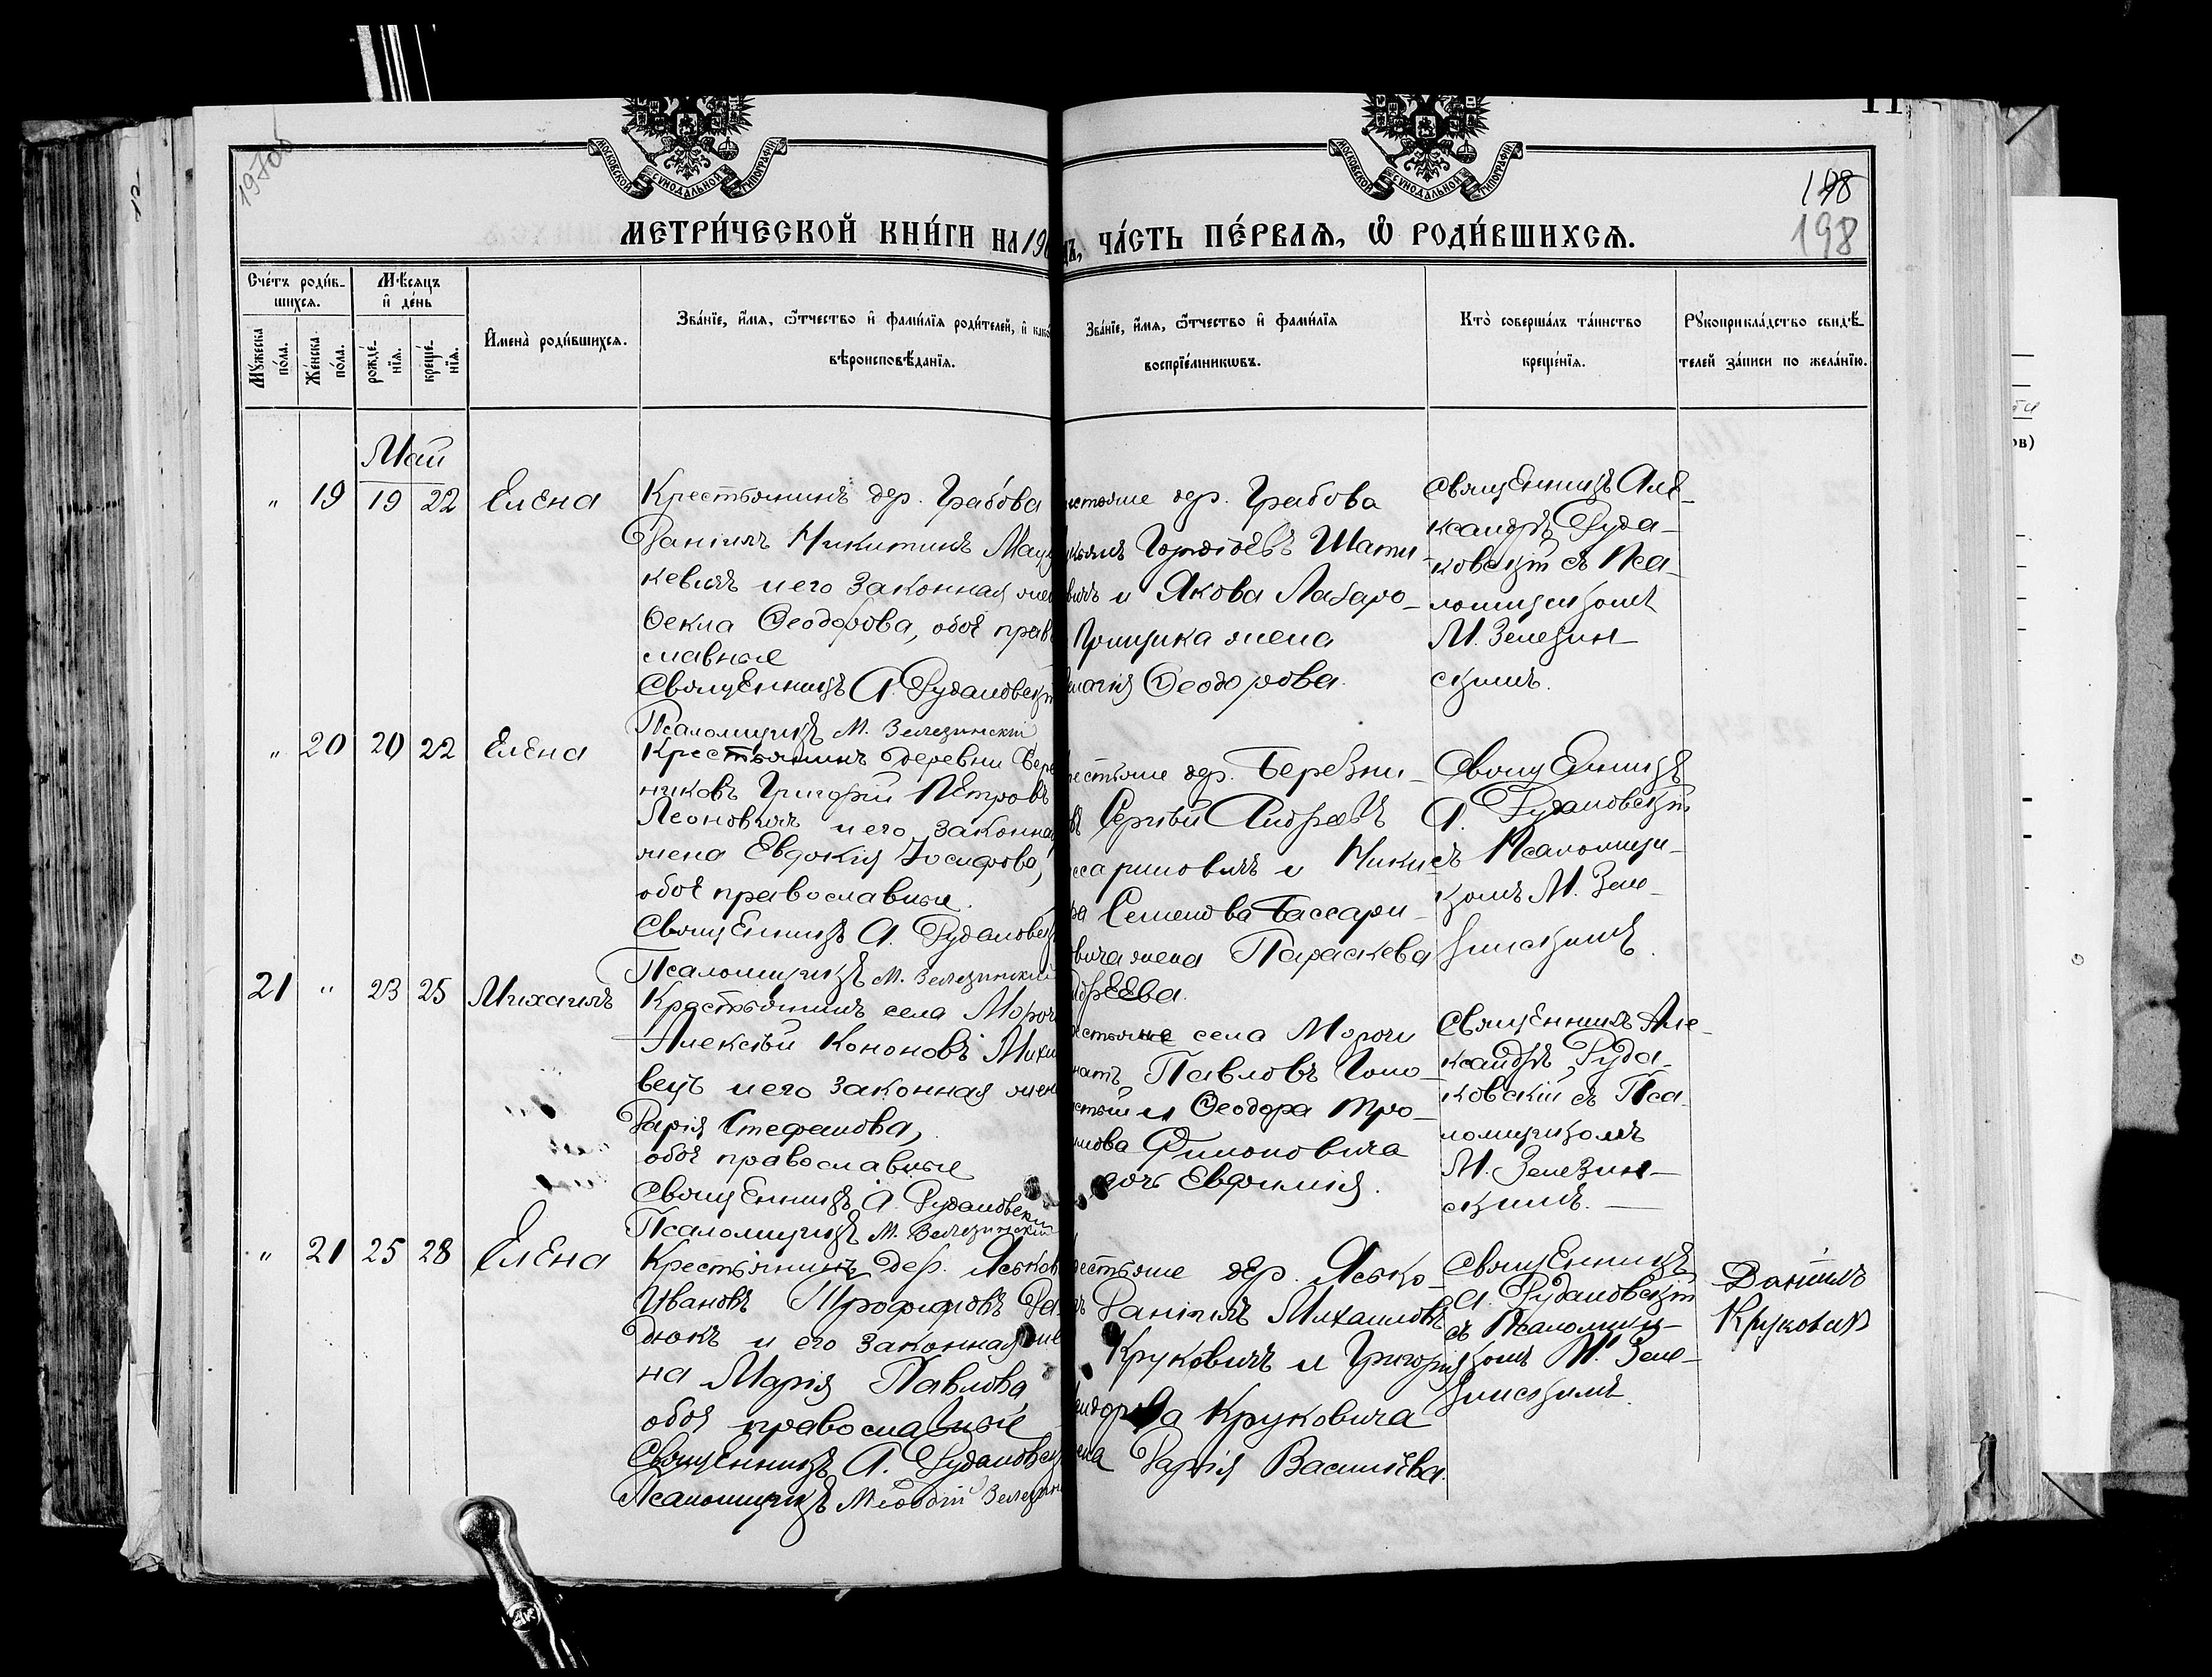 198
198
МОСКОВСКОЙ СУНОДАЛЬНОЙ ТИПОГРАФІИ
МОСКОВСКОЙ СУНОДАЛЬНОЙ ТИПОГРАФІИ
МЕТРИ́ЧЕСКОЙ КНИ́ГИ НА 19
ЧА́СТЬ ПЕ́РВАЯ, Ѽ РОДИ́ВШИХСЯ.
Сче́тъ роди́в-
шихся.
Мꙋжеска
по́ла.
Же́нска
по́ла.
Мѣсяцъ
и҆ де́нь
рожде́-
нїя.
креще́-
нїя.
И҆мена̀ роди́вшихся.
Зва́нїе, и҆́мя, ѻ҆́тчество и҆ фами́лїя роди́телей, и҆
вѣроисповѣ́данїя.
Зва́нїе, и҆́мя, ѻ҆́тчество и҆ фами́лїя
воспрїе́мникѡвъ.
Кто̀ соверша́лъ та́инство
креще́нїя.
Рꙋкоприкла́дство свидѣ́-
телей за́писи по жела́нїю.
Май
" 19 19 22 Елена
Крестьянинъ дер. Грабова
Даніилъ Никитинъ
кевичъ и его законная
Ѳекла Ѳеодорова, обоѣ прав
славные
Священникъ А. Рудаковскій
Псаломщикъ М. Зелезинскій
дер. Грабова
Шати-
и Якова Лазаро-
Грицука жена
Ѳеодорова.
Священникъ Але-
ксандръ Руда-
ковскій съ Пса-
ломщикомъ
М. Зелезин-
скимъ.
" 20 20 22 Елена
Крестьянинъ деревни Бере
никовъ Григорій Петровъ
Леоновичъ и его законная
жена Евдокія Іосифова,
обоѣ православные.
Священникъ А. Рудаковск
Псаломщикъ М. Зелезинскій
дер. Березни-
Сергѣй Андреевъ
и Ники-
Семенова Бассари-
жена Параскева
Андреева.
Священникъ
А. Рудаковскій
съ Псаломщи-
комъ М. Зеле-
зинскимъ.
21 " 23 25 Михаилъ
Крестьянинъ села Мороч
Алексѣй Кононовъ
вецъ и его законная жен
Дарія Стефанова,
обоѣ православные
Священникъ А. Рудаковскій
Псаломщикъ М. Зелезинскій
села Морочи
Павловъ Голо-
и Ѳеодора Тро-
Филоновича
дочь Евфимія.
Священникъ Але-
ксандръ Руда-
ковскій съ Пса-
ломщикомъ
М. Зелезин-
скимъ.
" 21 25 28 Елена
Крестьянинъ дер. Яськов
Ивановъ Трофимовъ
дюкъ и его законная же
на Марія Павлова,
обоѣ православные
Священникъ А. Рудаковск
Псаломщикъ Меѳодій Зелезин
дер. Ясько-
Даніилъ Михаиловъ
Круковичъ и Григорія
Круковича
Дарія Василіева.
Священникъ
А. Рудаковскій
съ Псаломщи-
комъ М. Зеле-
зинскимъ.
Даніилъ
Круковичъ